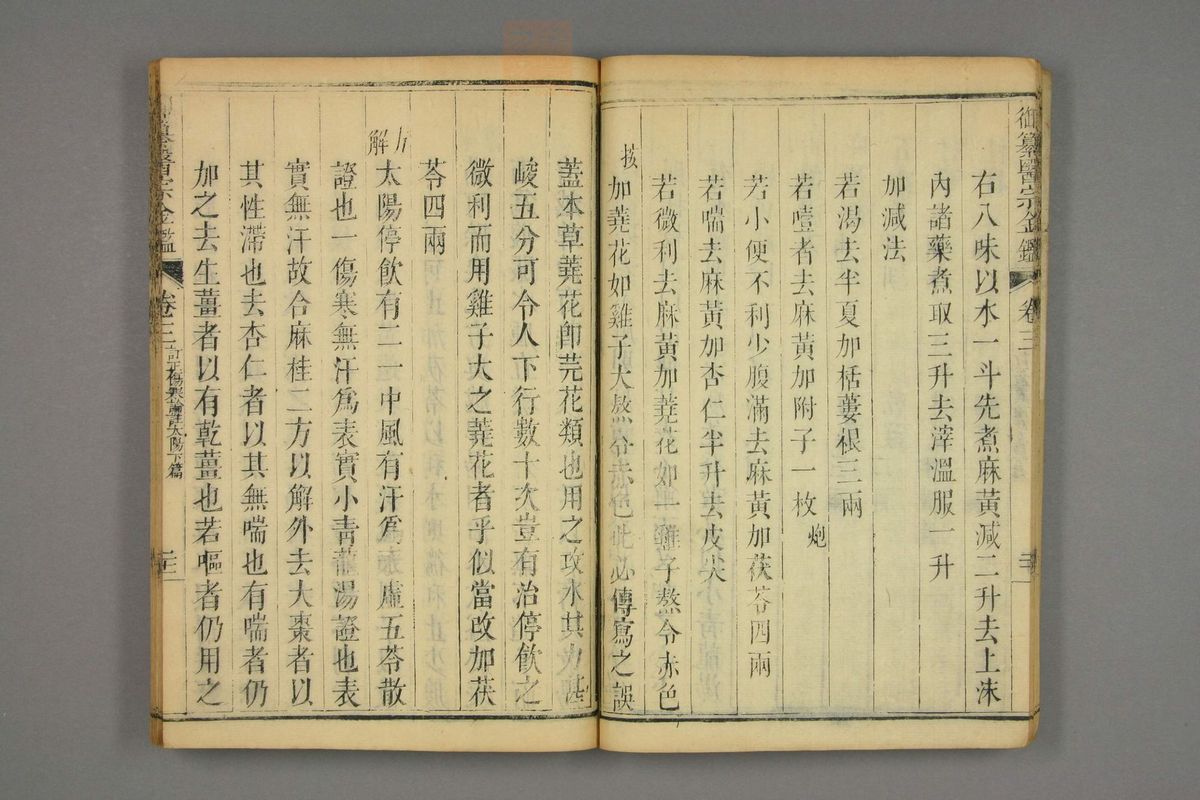 御纂醫宗金鑑 卷三
右八味以水一斗先煮麻黃減二升去上沫
內諸藥煮取三升去滓溫服一升
加減法
若渴去半夏加栝蔞根三兩
若噎者去麻黃加附子一枚炮
若小便不利少腹滿去麻黃加茯苓四兩
若喘去麻黃加杏仁半升去皮尖
若微利去麻黃加蕘花如一雞子熬令赤色
按
加蕘花如雞子大熬令赤色此必傳寫之誤
蓋本草蕘花卽芫花類也用之攻水其力甚
峻五分可令人下行數十次豈有治停飲之
微利而用雞子大之蕘花者乎似當改加茯
苓四兩
解
太陽停飲有二一中風有汗爲表虛五苓散
證也一傷寒無汗爲表實小青龍湯證也表
實無汗故合麻桂二方以解外去大棗者以
其性滯也去杏仁者以其無喘也有喘者仍
加之去生薑者以有乾薑也若嘔者仍用之
醫宗金鑑 卷三 訂正傷寒論註太陽下篇